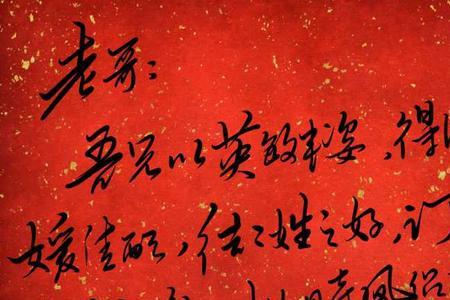 老哥：
吾兄以英敏丰姿，得
媛佳配，结二姓之好，订